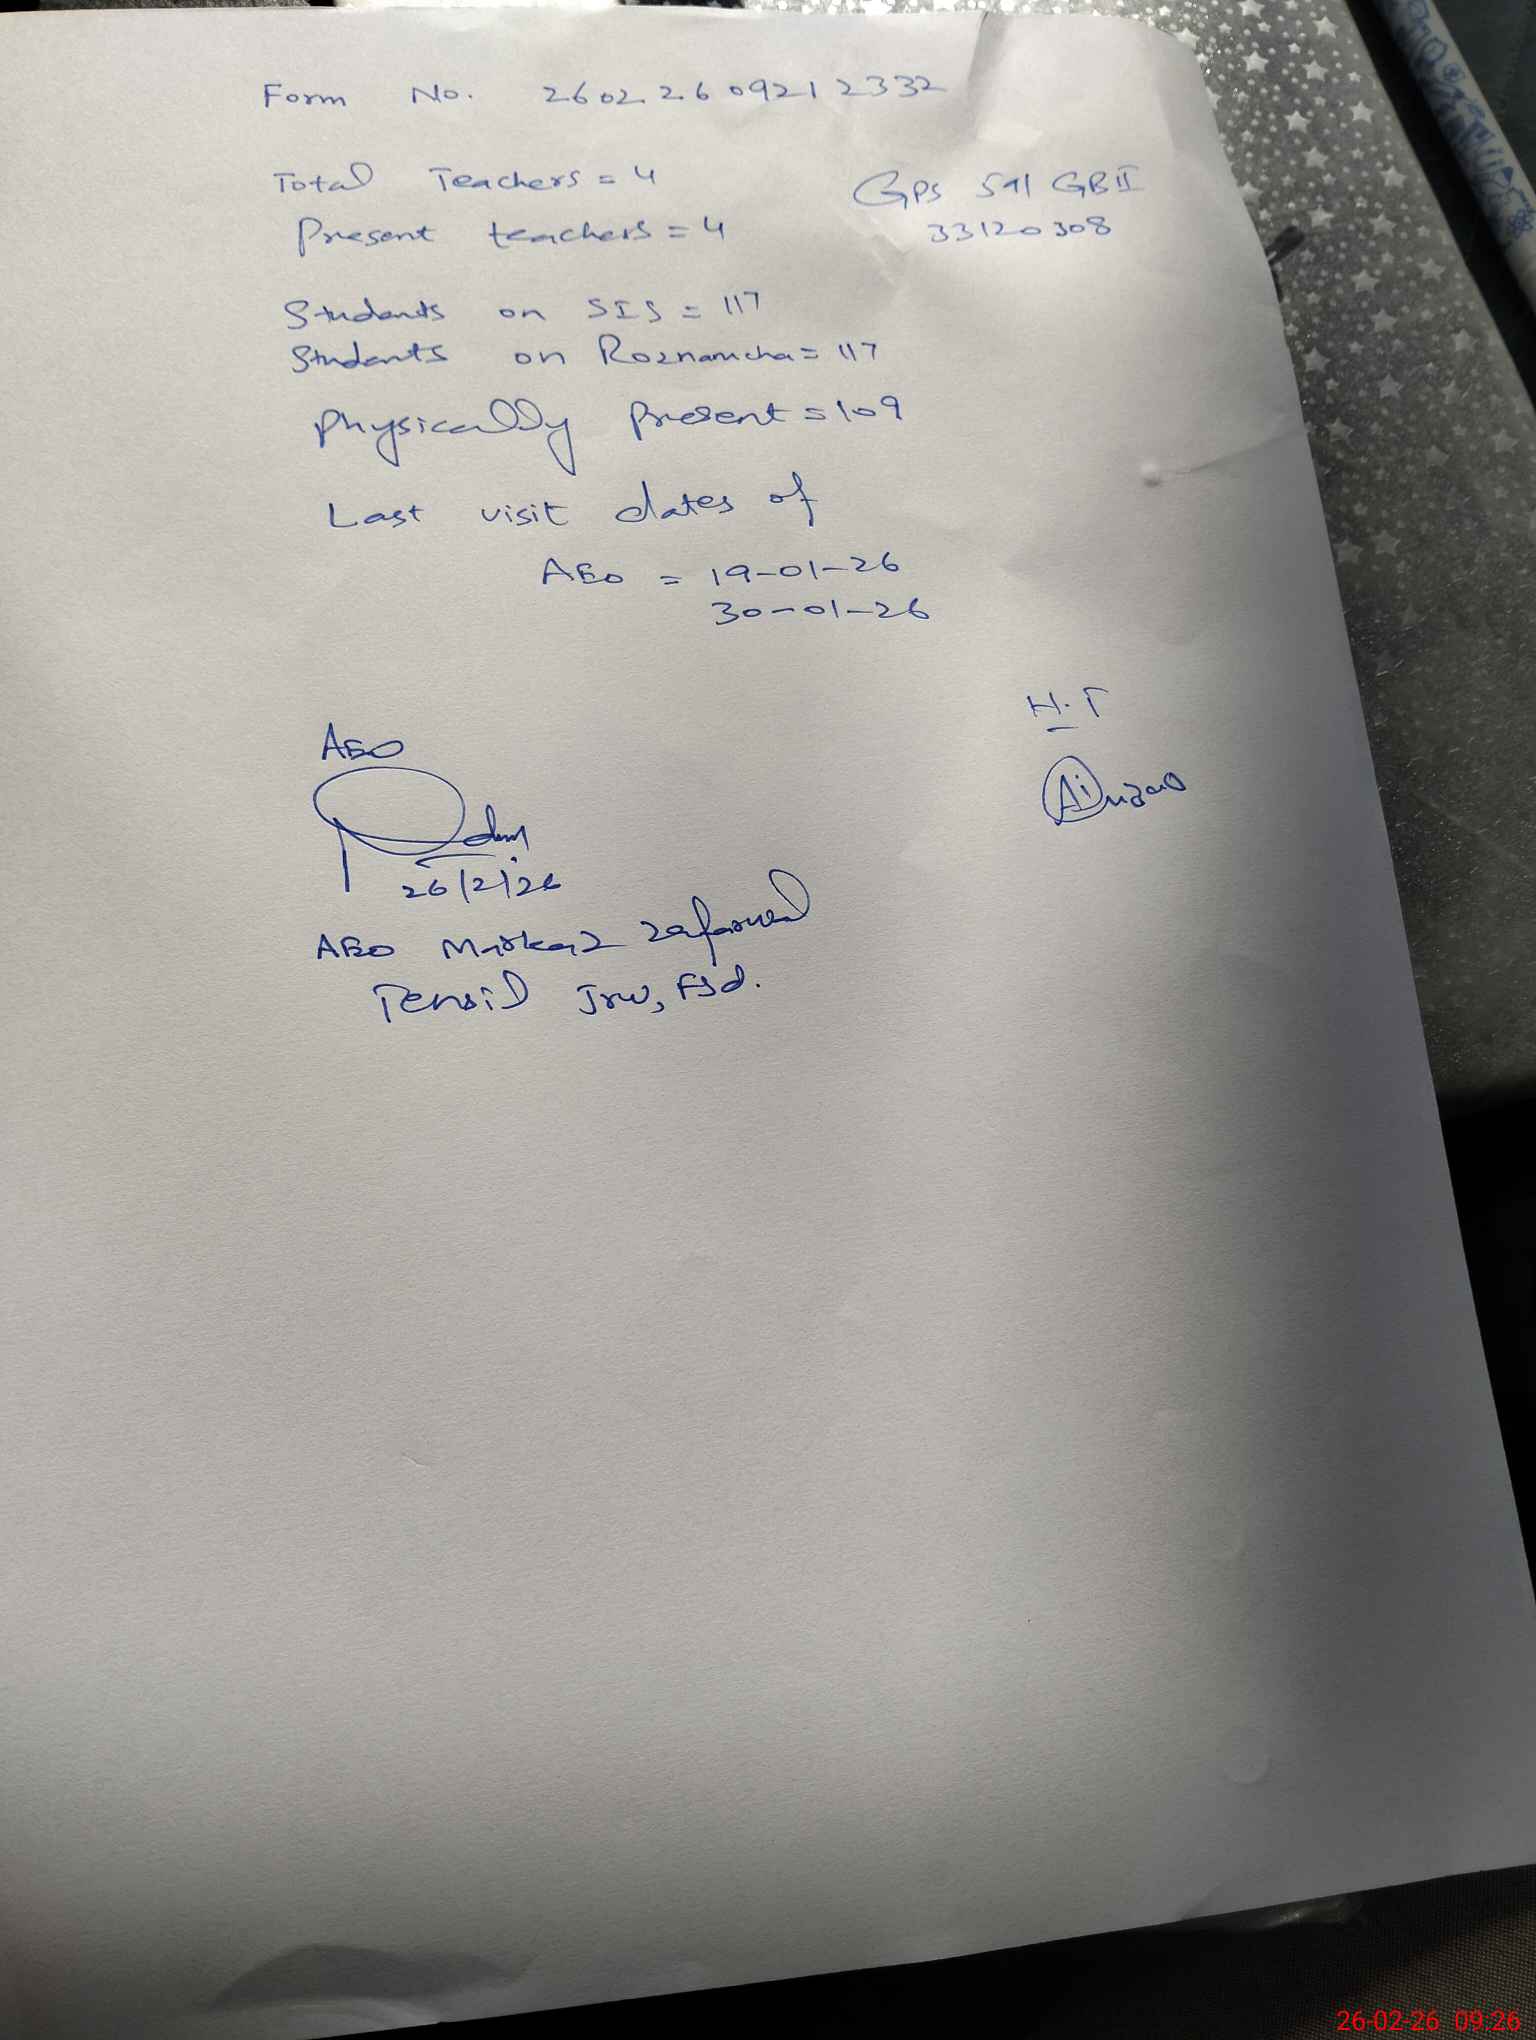 Form No. 26022609212332
Total Teachers = 4
GPS 591 GBII
Present teachers = 4
33120308
Students on SIS = 117
Students on Roznamcha = 117
Physically Present = 109
Last visit dates of
AEO = 19-01-26
30-01-26
H.T
AEO
26/2/26
AEO Markaz Zafarwal
Tehsil Jrw, Fsd.
26-02-26 09:26